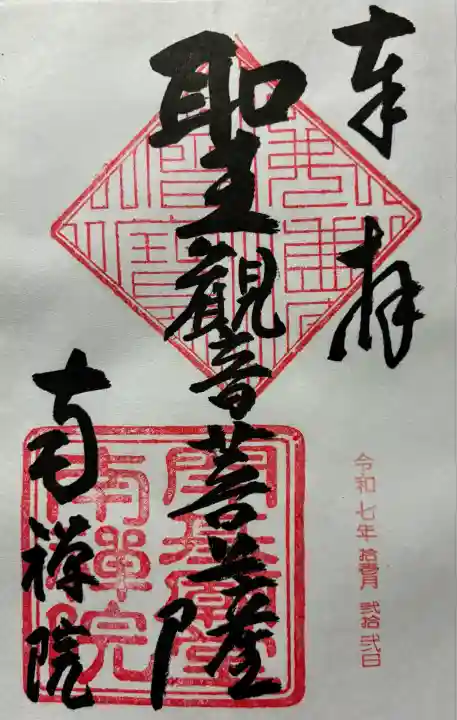 奉拝
聖觀音菩薩
南禅院
令和七年 拾壱月 弐拾弐日
南禪院